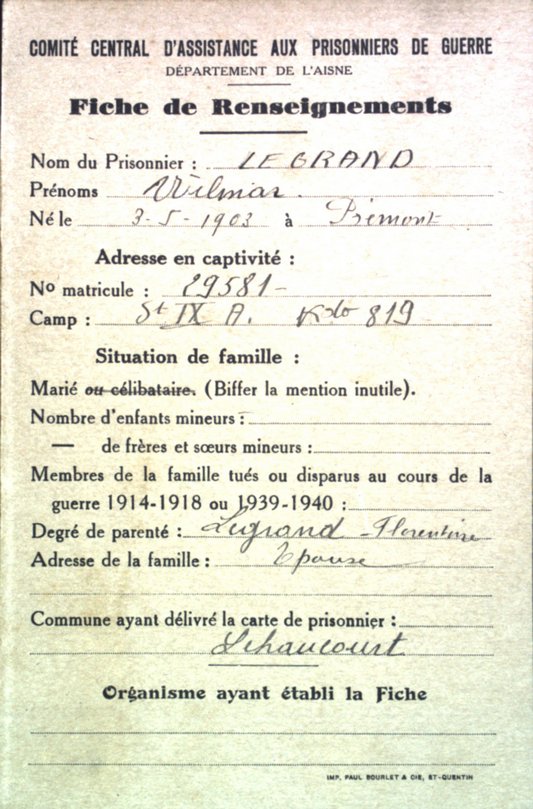 COMITÉ CENTRAL D'ASSISTANCE AUX PRISONNIERS DE GUERRE
DÉPARTEMENT DE L'AISNE
Fiche de Renseignements
Nom du Prisonnier : LEGRAND
Prénoms Wilmar.
Né le 3-5-1903 à Prémont
Adresse en captivité :
No matricule : 29581-
Camp : St IX A. Kdo 819
Situation de famille :
Marié ou célibataire. (Biffer la mention inutile).
Nombre d'enfants mineurs :
— de frères et sœurs mineurs :
Membres de la famille tués ou disparus au cours de la
guerre 1914-1918 ou 1939-1940 :
Degré de parenté : Legrand - Florentine
Adresse de la famille : Epouse
Commune ayant délivré la carte de prisonnier :
Lehaucourt
Organisme ayant établi la Fiche
IMP. PAUL BOURLET & CIE, ST-QUENTIN